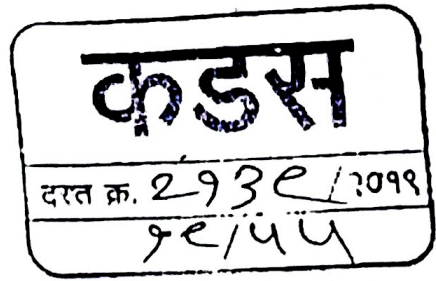 कडस
दस्त क्र. २१३९/२०१९
१९/५५